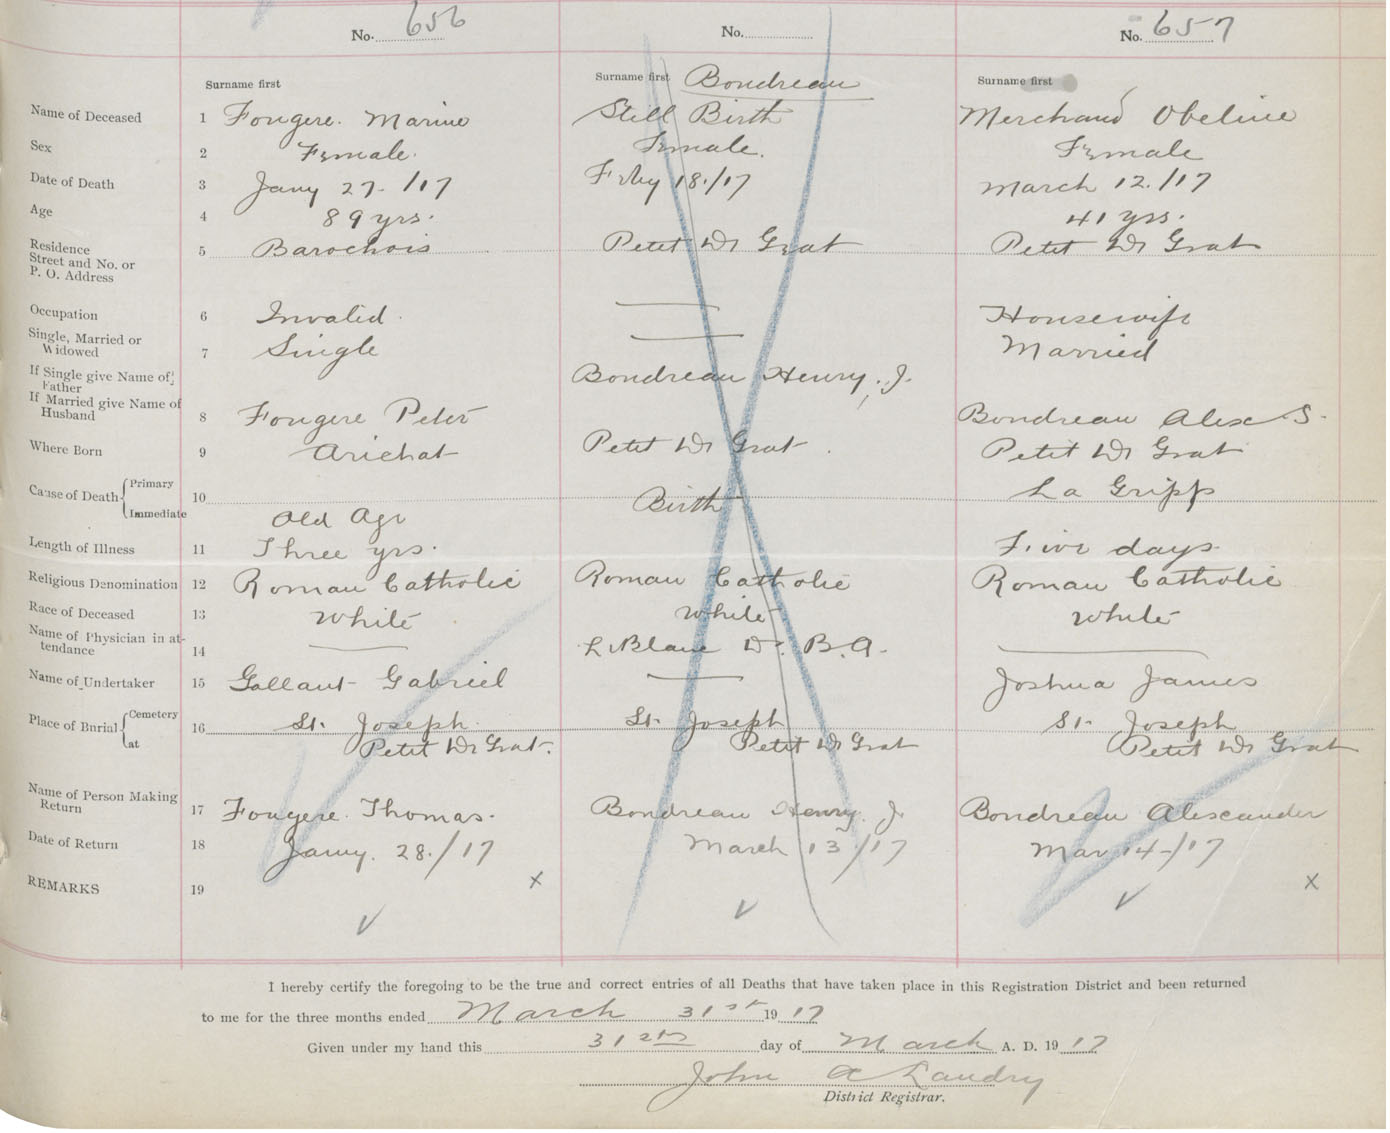 No. 656 No. No. 657
Surname first Surname first Boudreau Surname first
Name of Deceased 1 Fougere. Marine Still Birth Merchand Obeline
Sex 2 Female. Female. Female
Date of Death 3 Jany 27-/17 Feby 18./17 March 12./17
Age 4 89 yrs. 41 yrs.
Residence Street and No. or P. O. Address 5 Barochois Petit De Grat Petit De Grat
Occupation 6 Invalid. — Housewife
Single, Married or Widowed 7 Single — Married
If Single give Name of Father Boudreau Henry. J.
If Married give Name of Husband 8 Fougere Peter Boudreau Alex S.
Where Born 9 Arichat Petit De Grat. Petit De Grat
Cause of Death { Primary 10 Birth La Gripp
Immediate Old Age
Length of Illness 11 Three yrs. Five days
Religious Denomination 12 Roman Catholic Roman Catholic Roman Catholic
Race of Deceased 13 White White White
Name of Physician in attendance 14 — LeBlanc Dr. B.A. —
Name of Undertaker 15 Gallant Gabriel — Joshua James
Place of Burial { Cemetery 16 St. Joseph. St. Joseph St. Joseph
at Petit De Grat. Petit De Grat Petit De Grat
Name of Person Making Return 17 Fougere. Thomas. Boudreau Henry. J. Boudreau Alexcander
Date of Return 18 Jany. 28./17 March 13/17 Mar 14-/17
REMARKS 19 x x
I hereby certify the foregoing to be the true and correct entries of all Deaths that have taken place in this Registration District and been returned
to me for the three months ended March 31st 19 17
Given under my hand this 31st day of March A. D. 19 17
John A Landry
District Registrar.